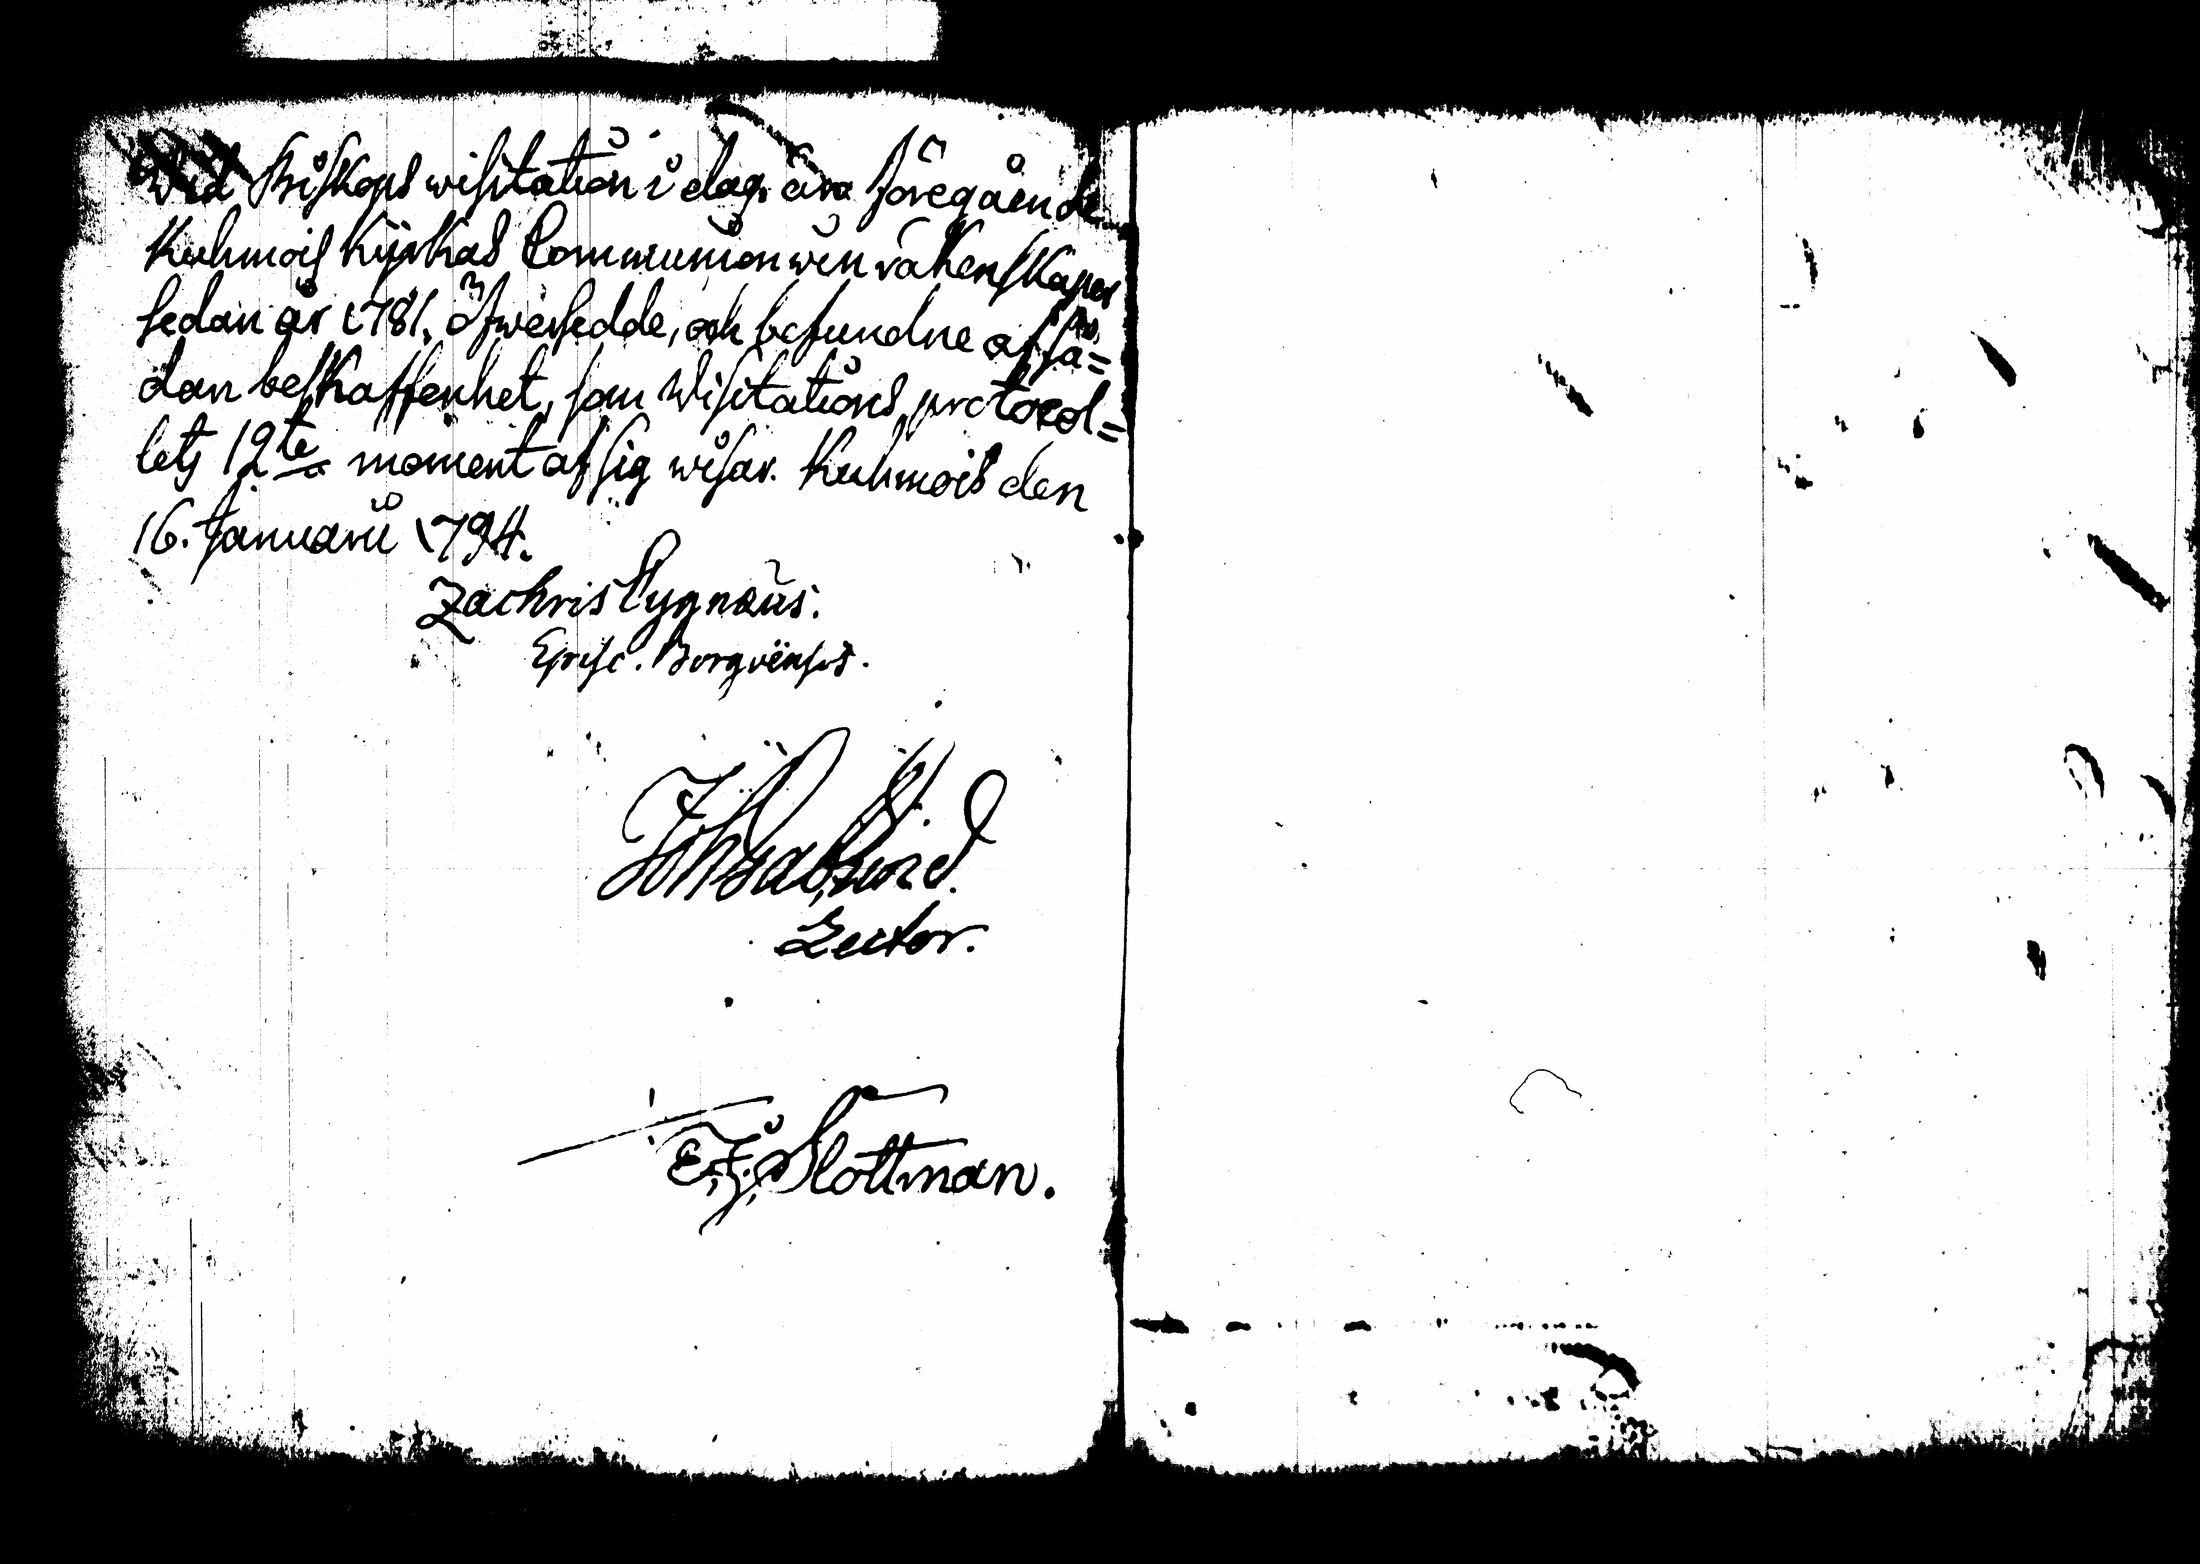 Wid Biskops wisitation i dag äro föregående
Kuhmois Kyrkas Communionwin räkenskaper
sedan år 1781. öfwersedde, och befundne af så=
dan beskaffenhet, som Wisitations protocol=
lets 12te moment af sig wisar. Kuhmois den
16. Januarii 1794.
Zachris Cygnæus.
Episc. Borgoënsis.
Lector.
E. J. Slottman.